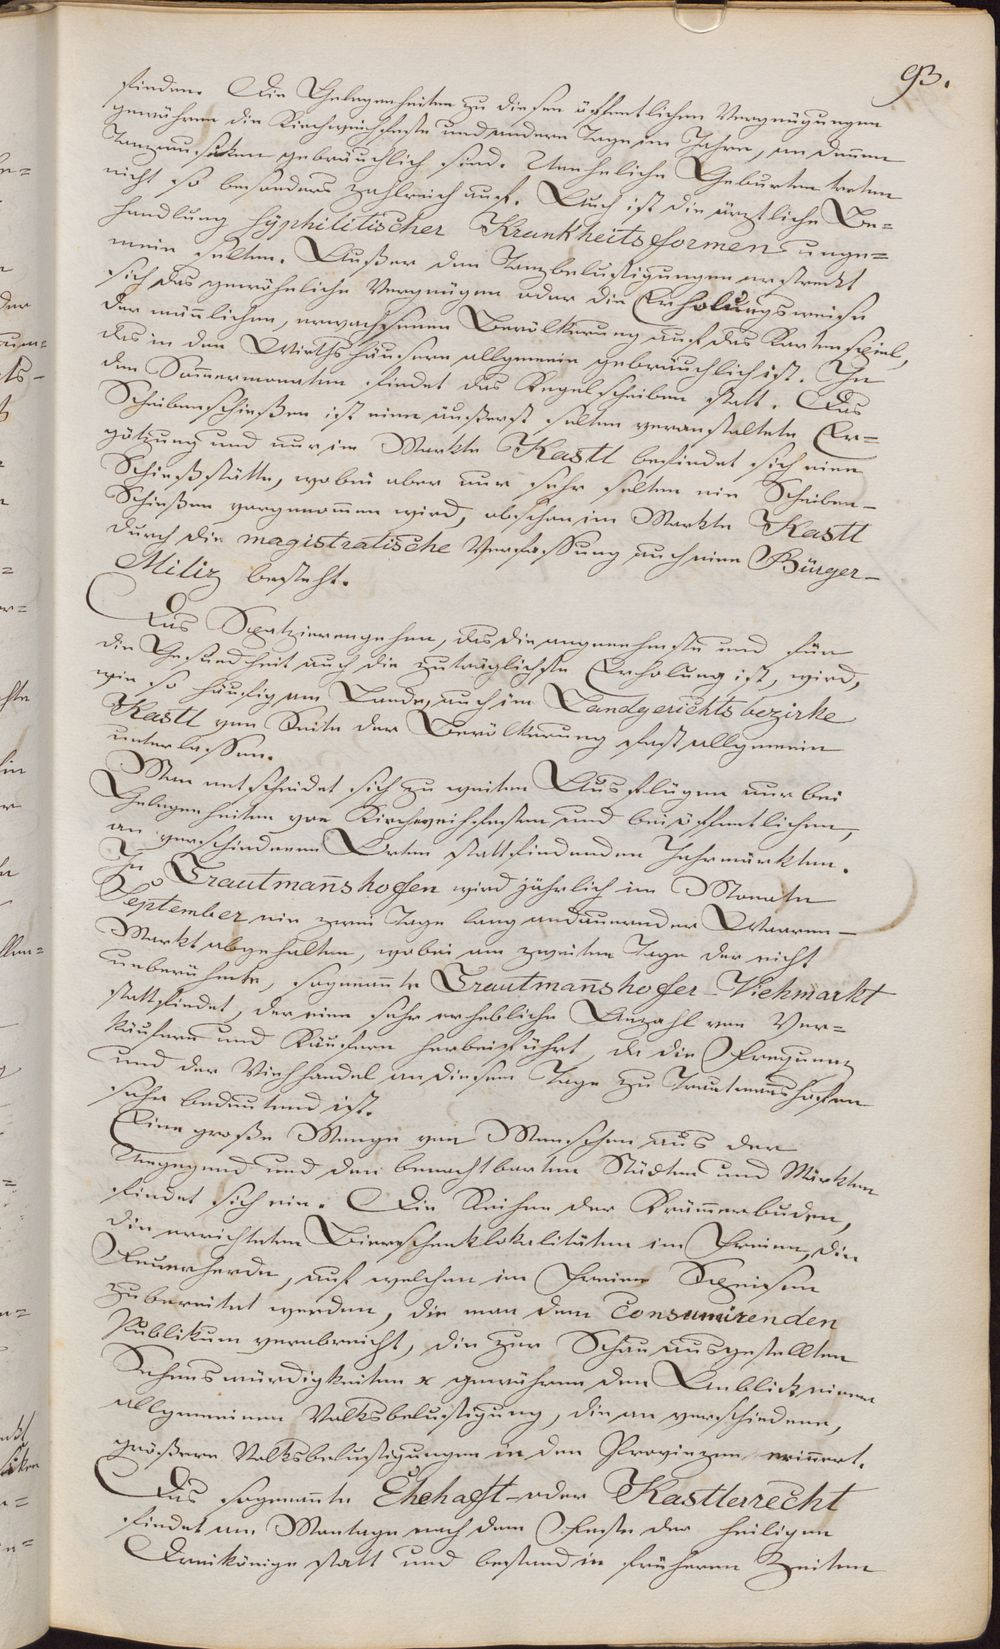 93.
finden. Die Gelegenheiten zu diesen öffentlichen Vergnügungen
gewähren die Kirchweihfeste und andere Tage im Jahre, an denen
Tanzmusiken gebräuchlich sind. Uneheliche Geburten treten
nicht so besonders zahlreich auf. Auch ist die ärztliche Be=
handlung syphilitischer Krankheitsformen unge=
mein selten. Außer den Tanzbelustigungen erstreckt
sich das gewöhnliche Vergnügen oder die Erholungsweise
der männlichen, erwachsenen Bevölkerung auf das Kartenspiel,
das in den Wirthshäusern allgemein gebräuchlich ist. In
den Som̅ermonaten findet das Kegelscheiben statt. Das
Scheibenschießen ist eine äußerst selten veranstaltete Er=
götzung und nur im Markte Kastl befindet sich eine
Schießstätte, wobei aber nur sehr selten ein Scheiben-
Schießen vorgenom̅en wird, obschon im Markte Kastl
durch die magistratische Verfassung auch eine Bürger-
Miliz besteht.
Das Spatzierengehen, das die angenehmste und für
die Gesundheit auch die zuträglichste Erholung ist, wird,
wie so häufig am Lande, auch im Landgerichtsbezirke
Kastl von Seite der Bevölkerung fast allgemein
unterlassen.
Man entscheidet sich zu weiten Ausflügen nur bei
Gelegenheiten von Kirchweihfesten und bei öffentlichen,
an verschiedenen Orten stattfindenden Jahrmärkten.
In Trautman̅shofen wird jährlich im Monate
September ein zwei Tage lang andauernder Waaren-
Markt abgehalten, wobei am zweiten Tage der nicht
unberühmte, sogenan̅te Trautman̅shofer-Viehmarkt
stattfindet, der eine sehr erhebliche Anzahl von Ver=
käufern und Käufern herbeiführt, da die Frequenz
und der Viehhandel an diesem Tage zu Trautman̅shofen
sehr bedeutend ist.
Eine große Menge von Menschen aus der
Umgegend und den benachtbarten Städten und Märkten
findet sich ein. Die Reihen der Kräm̅erbuden,
die errichteten Bierschenklokalitäten im Freien, die
Feuerherde, auf welchen im Freien Speisen
zubereitet werden, die man dem consumirenden
Publikum verabreicht, die zur Schau ausgestellten
Sehenswürdigkeiten x gewähren den Anblick einer
allgemeinen Volksbelustigung, die an verschiedene,
größere Volksbelustigungen in den Provinzen erin̅ert.
Das sogenan̅te Ehehaft- oder Kastlerrecht
findet am Montage nach dem Feste der heiligen
Dreikönige statt und bestand in früheren Zeiten